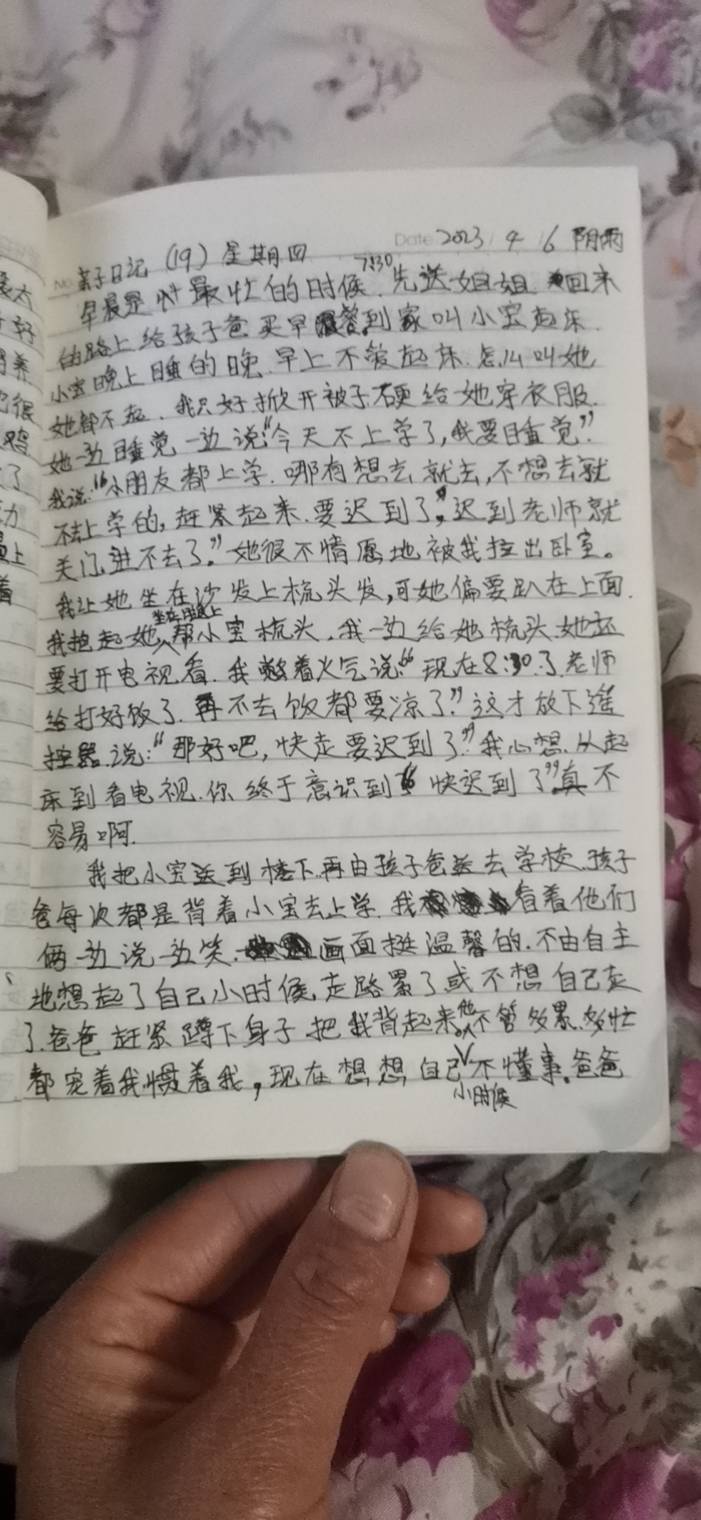 Date 2023 4 6 阴雨
No. 亲子日记 (19) 星期四
早晨是忙最忙的时候. 7:30先送姐姐. 回来
的路上给孩子爸买早餐到家叫小宝起床.
小宝晚上睡的晚. 早上不爱起床. 怎么叫她
她都不起. 我只好掀开被子硬给她穿衣服.
她一边睡觉一边说:“今天不上学了, 我要睡觉”
我说:“小朋友都上学. 哪有想去就去, 不想去就
不去上学的, 赶紧起来. 要迟到了, 迟到老师就
关门, 进不去了.”她很不情愿地被我拉出卧室。
我让她坐在沙发上梳头发, 可她偏要趴在上面.
我抱起她坐在腿上帮小宝梳头. 我一边给她梳头. 她还
要打开电视看. 我憋着火气说“现在8:30了. 老师
给打好饭了. 再不去饭都要凉了.”这才放下遥
控器. 说:“那好吧, 快走要迟到了.”我心想. 从起
床到看电视. 你终于意识到“快迟到了”真不
容易啊.
我把小宝送到楼下. 再由孩子爸送去学校. 孩子
爸每次都是背着小宝去上学. 我看着他们
俩一边说一边笑. 画面挺温馨的. 不由自主
地想起了自己小时候. 走路累了或不想自己走
了. 爸爸赶紧蹲下身子. 把我背起来. 他不管多累. 多忙
都宠着我惯着我, 现在想想自己小时候不懂事. 爸爸
最太
好
养
很
鸡
了
力
上
着